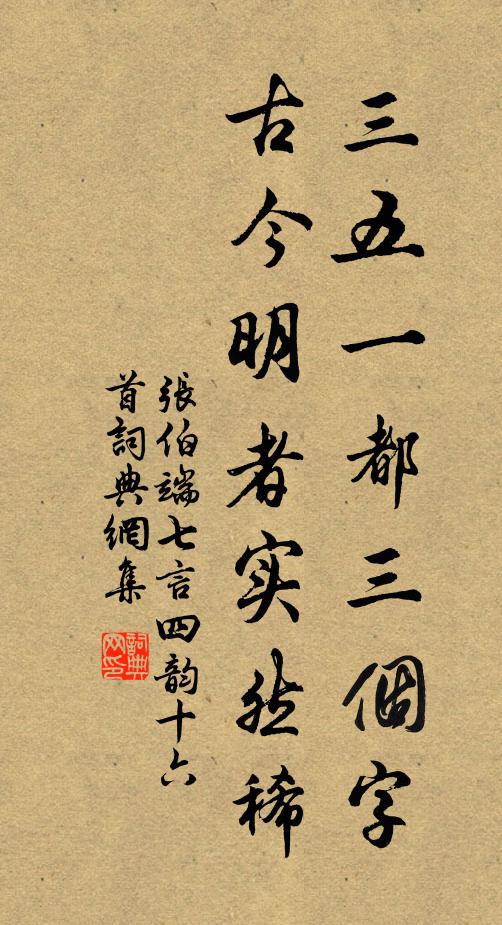 三五一都三個字
古今明者实然稀
張伯端七言四韵十六
首詞典網集
詞典
网印